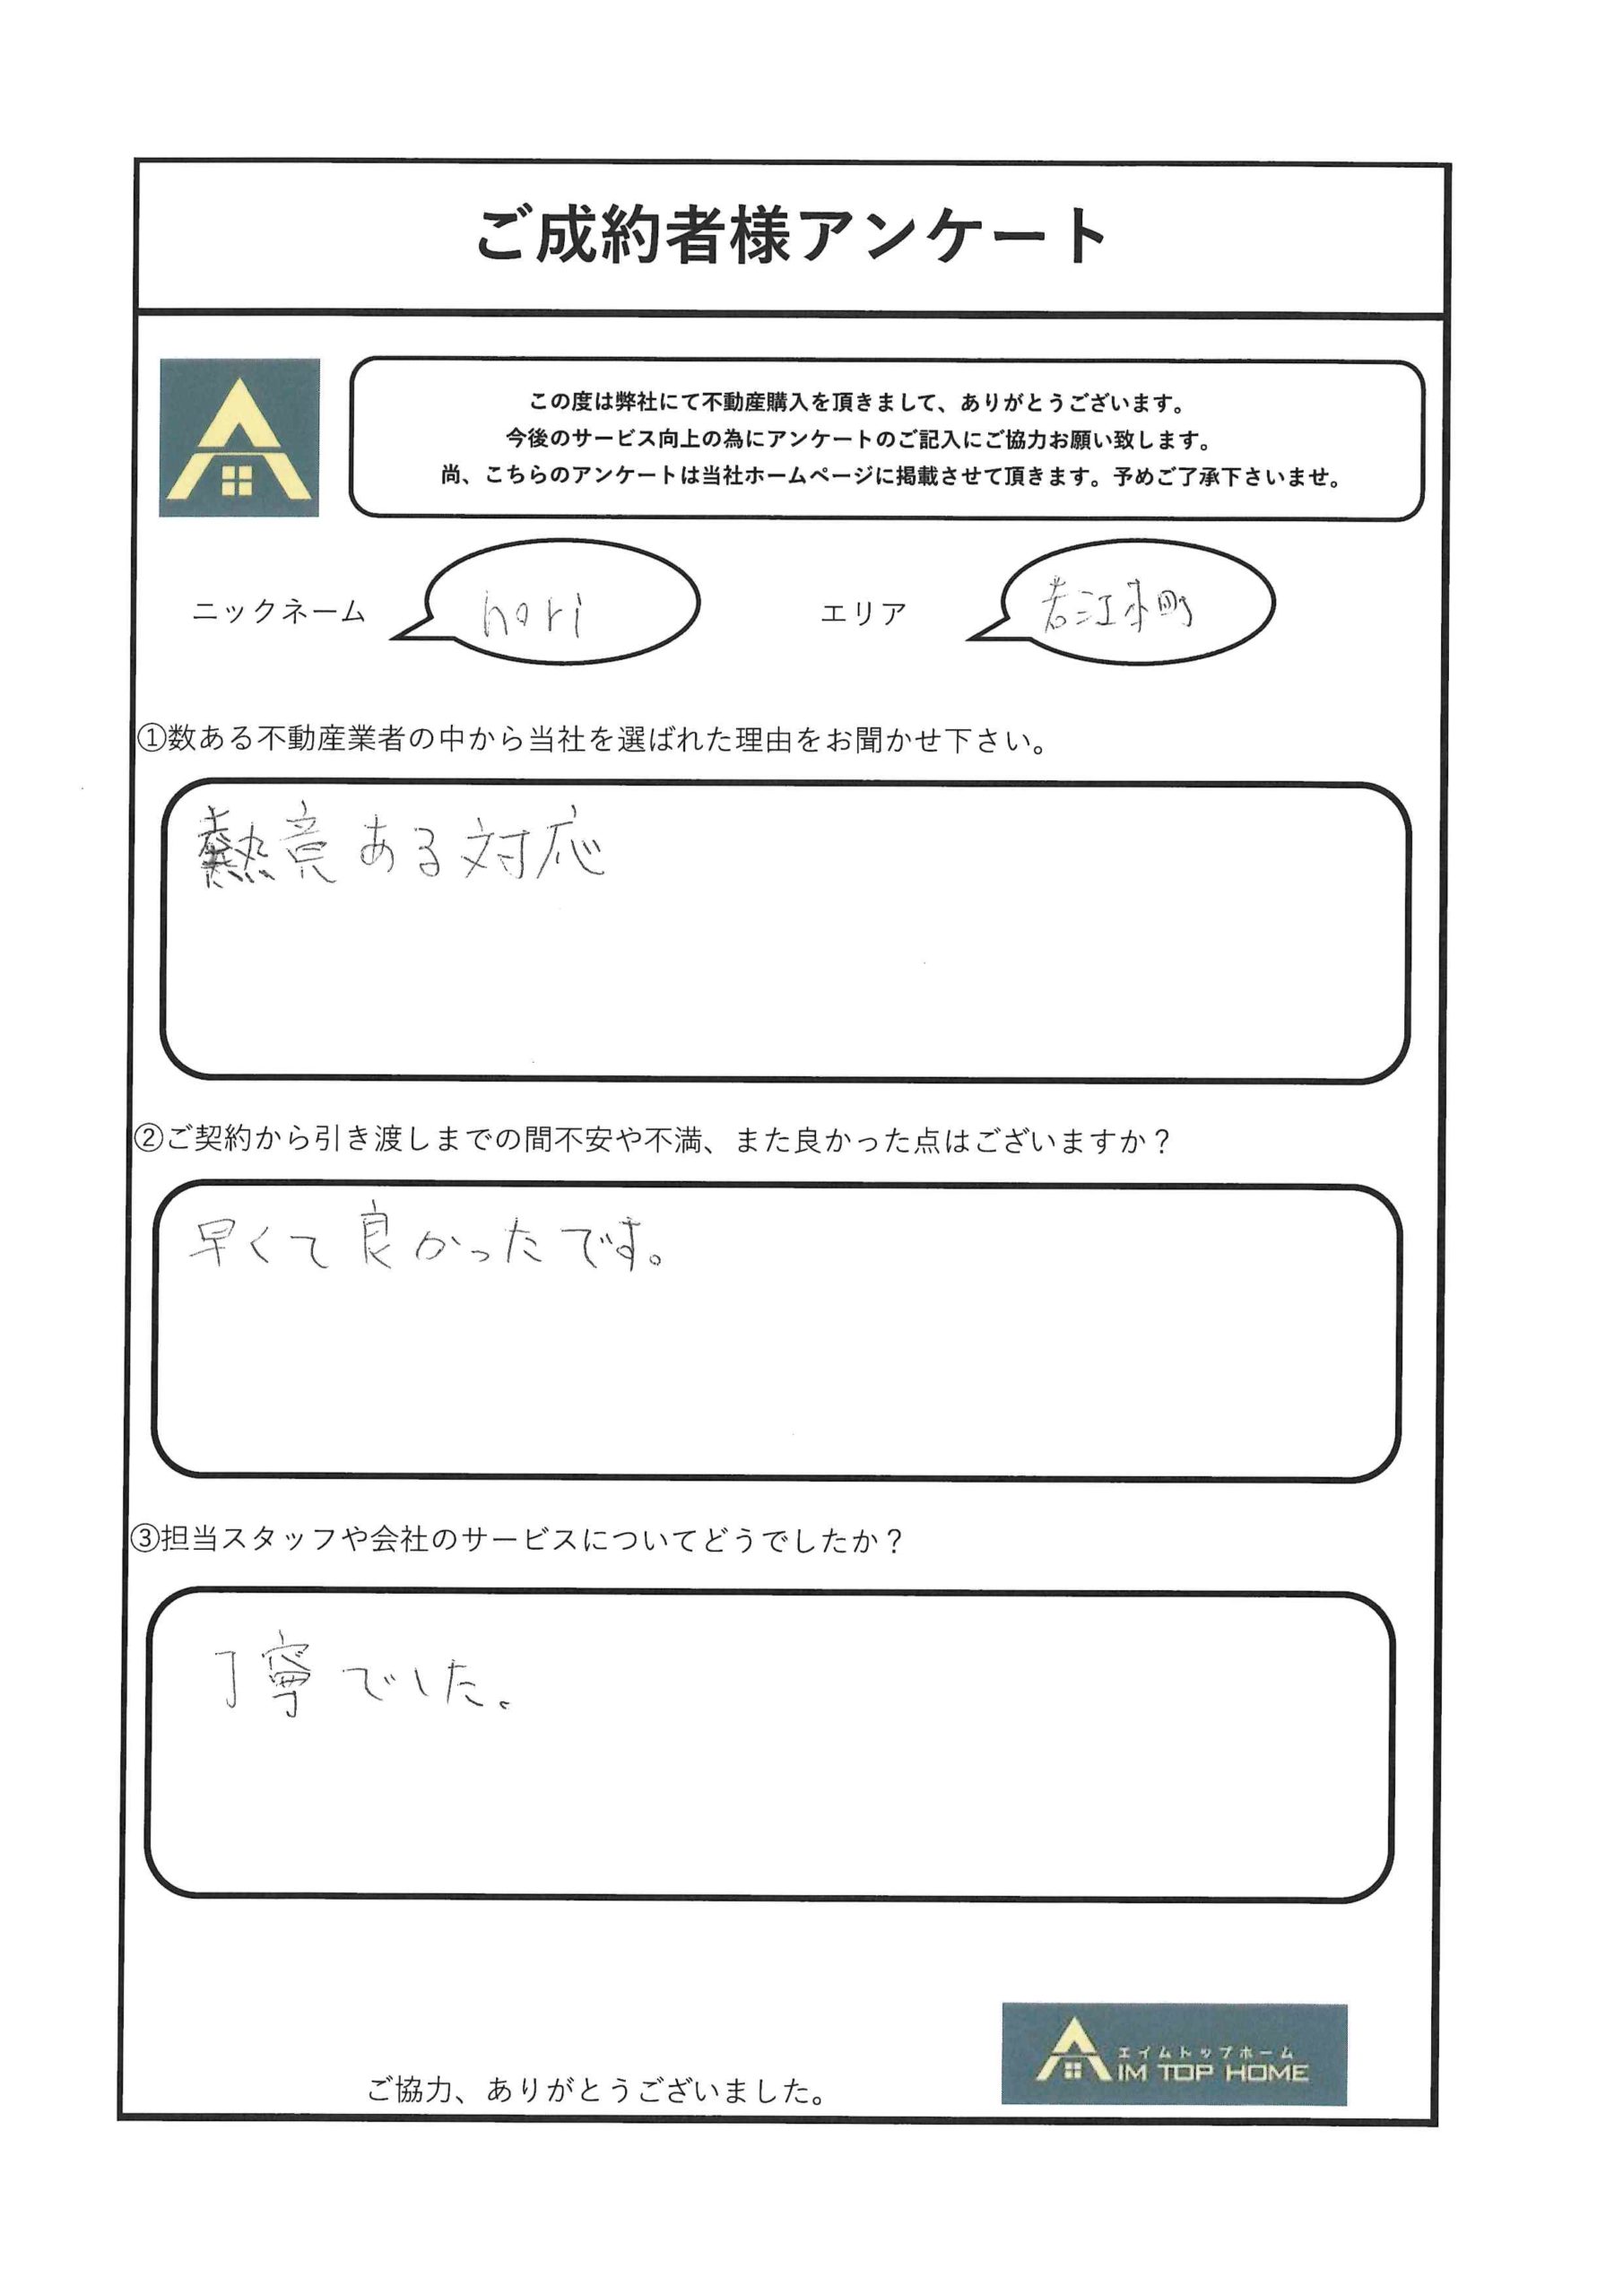 ご成約者様アンケート
この度は弊社にて不動産購入を頂きまして、ありがとうございます。
今後のサービス向上の為にアンケートのご記入にご協力お願い致します。
尚、こちらのアンケートは当社ホームページに掲載させて頂きます。予めご了承下さいませ。
ニックネーム hori エリア 若江本町
①数ある不動産業者の中から当社を選ばれた理由をお聞かせ下さい。
熱意ある対応
②ご契約から引き渡しまでの間不安や不満、また良かった点はございますか？
早くて良かったです。
③担当スタッフや会社のサービスについてどうでしたか？
丁寧でした。
エイムトップホーム
AIM TOP HOME
ご協力、ありがとうございました。